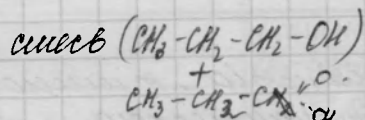 смесь (CH3-CH2-CH2-OH)
+
CH3-CH2-C
O